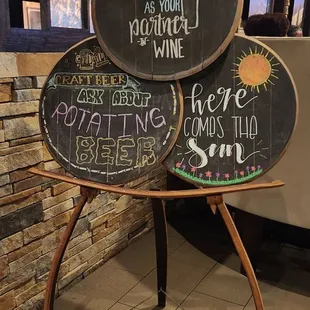 AS YOUR
partner
in WINE
CRAFT BEER
ASK ABOUT
POTATING
BEER
here
COMES THE
Sun